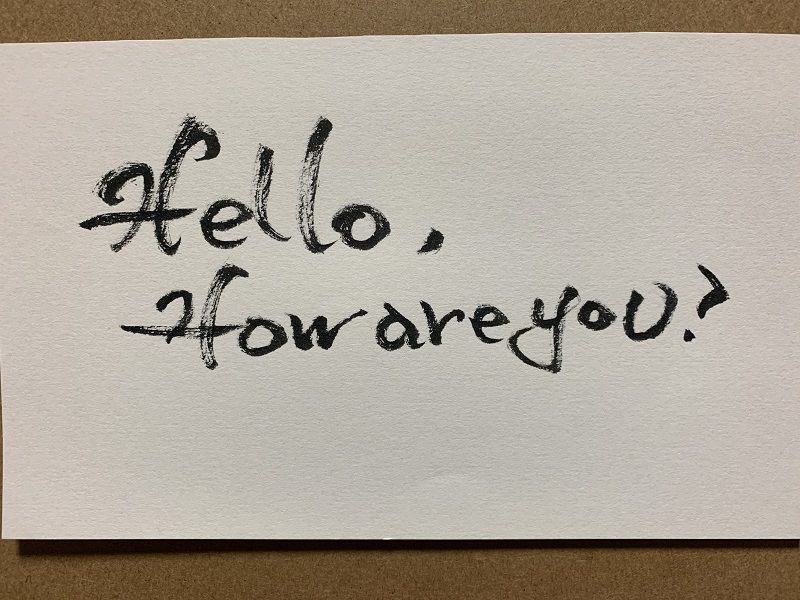 Hello,
How are you?